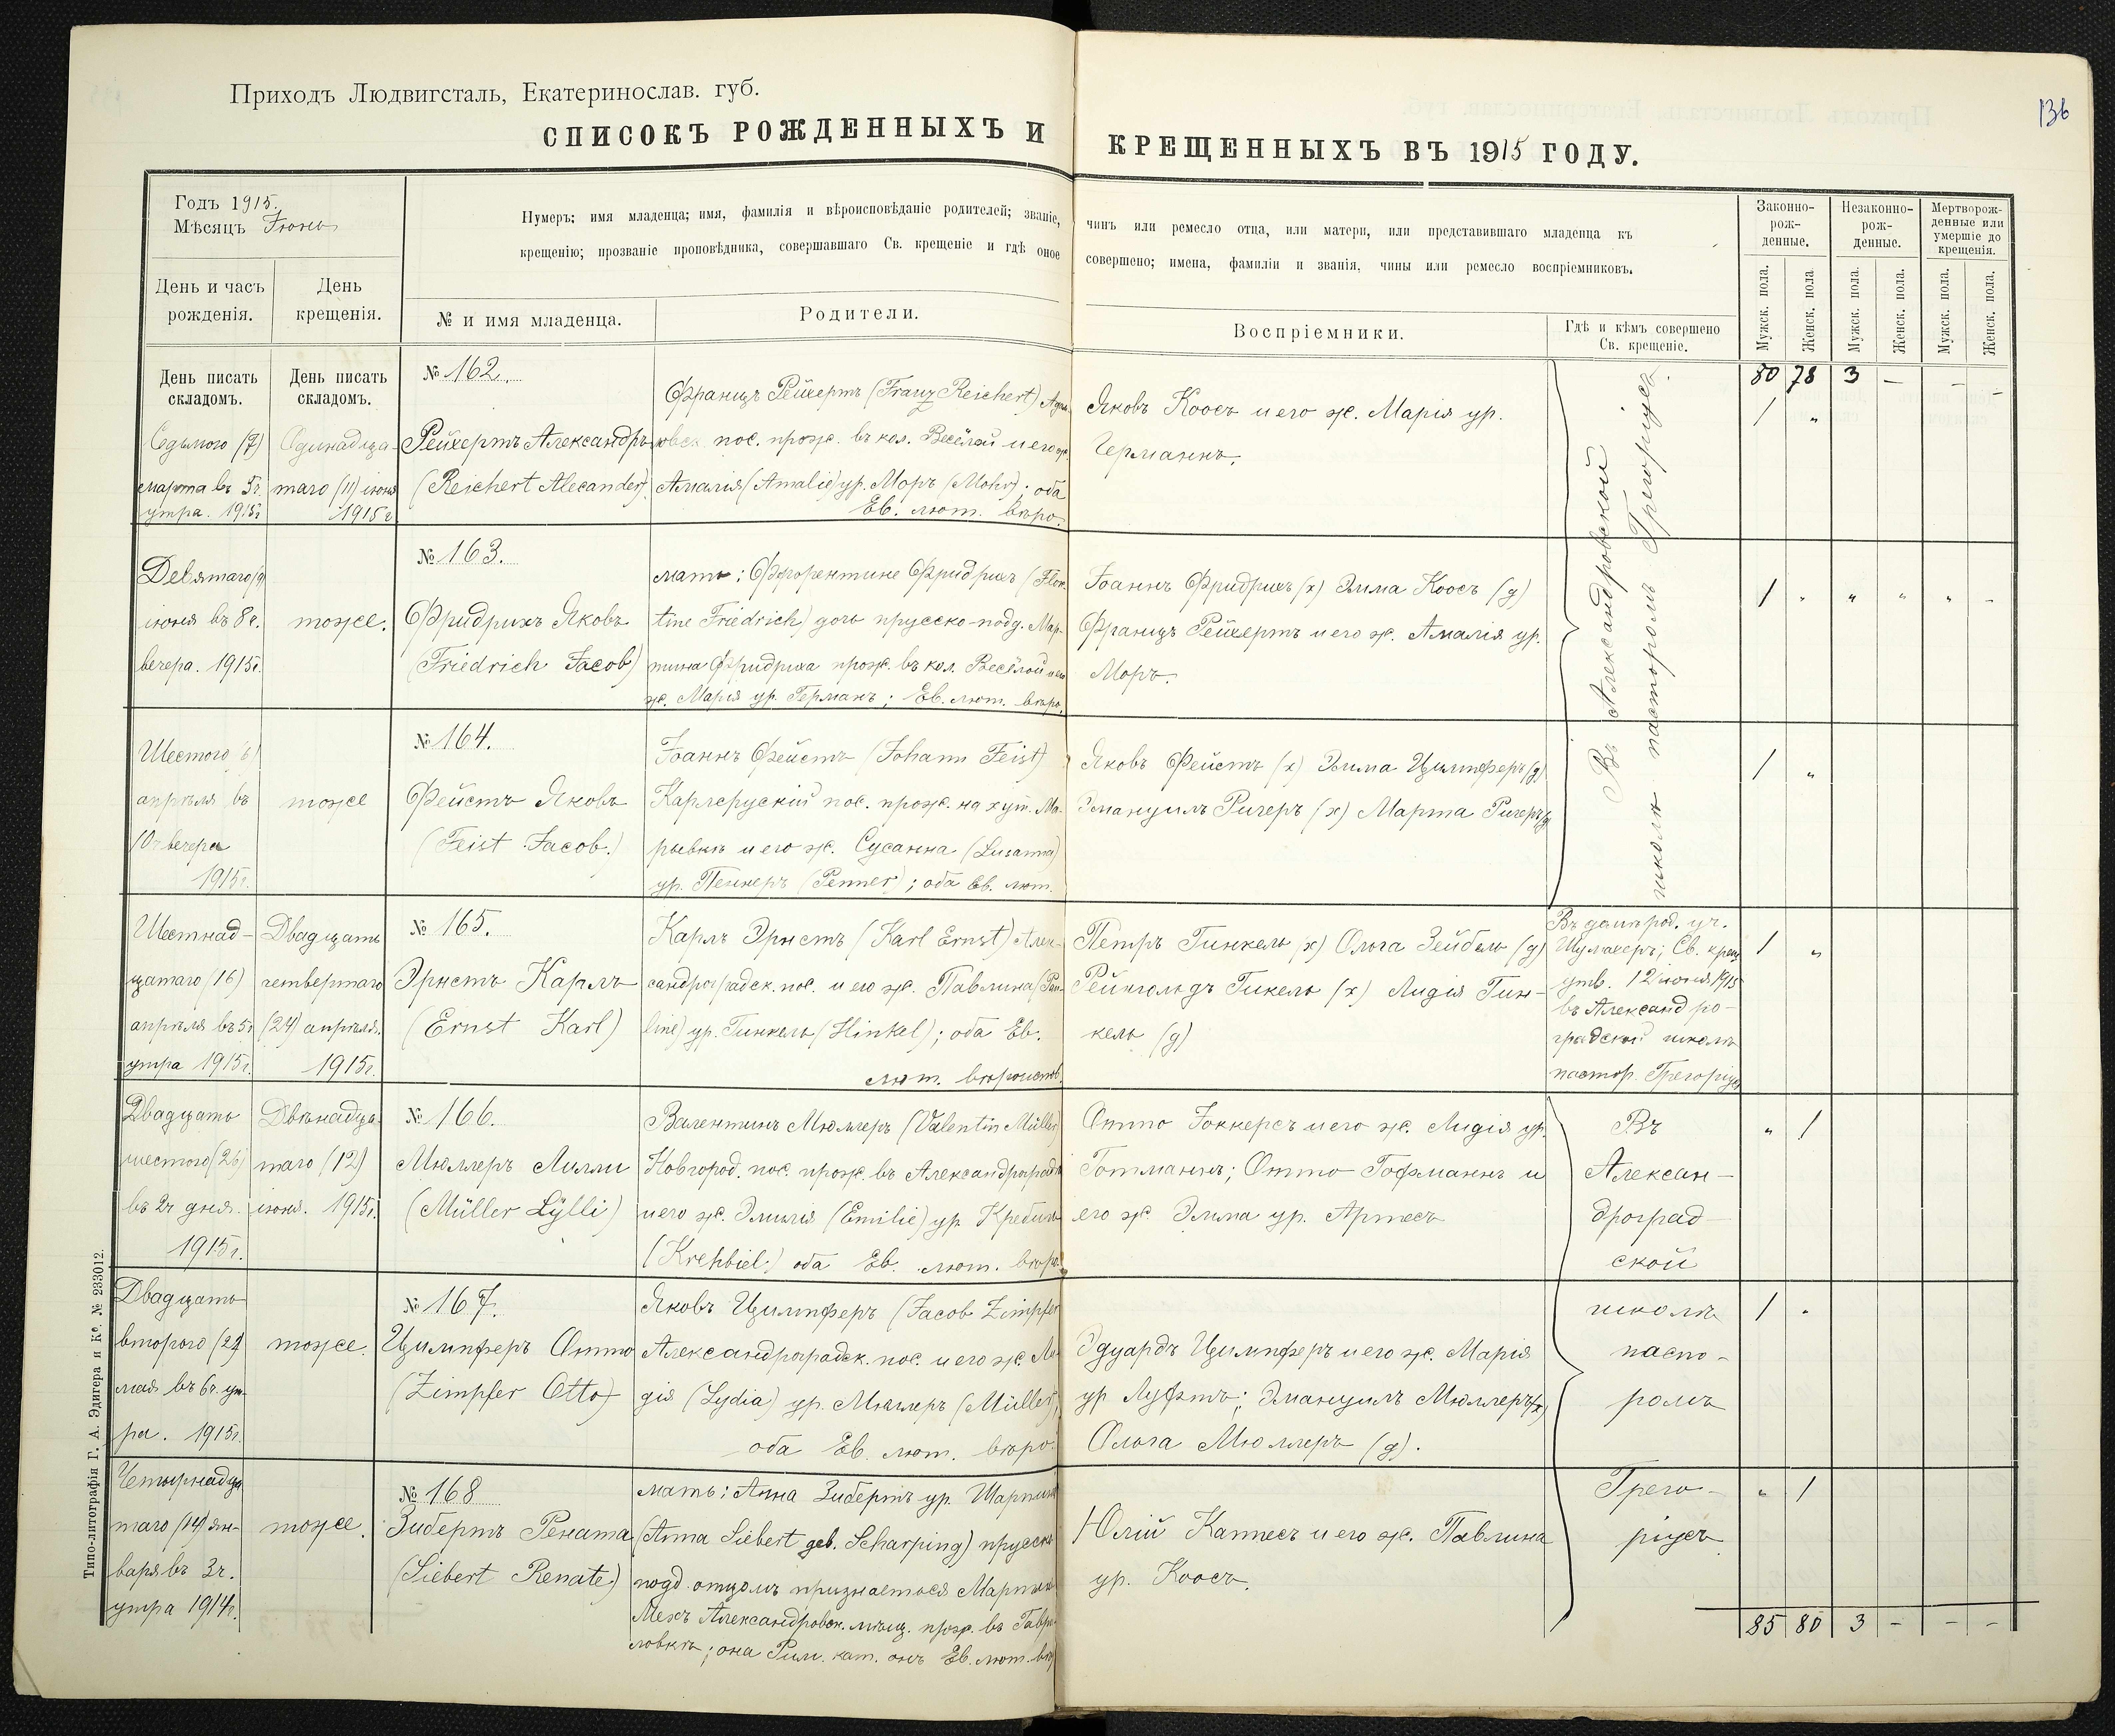 Приходъ Людвигсталь, Екатеринослав. губ.
136
СПИСОКЪ РОЖДЕННЫХЪ И КРЕЩЕННЫХЪ ВЪ 1915 ГОДУ.
Годъ 1915.
Мѣсяцъ Іюнь
День и часъ
рожденія.
День
крещенія.
Нумеръ; имя младенца; имя, фамилія и вѣроисповѣданіе родителей; званіе, чинъ или ремесло отца, или матери, или представившаго младенца къ
крещенію; прозваніе проповѣдника, совершавшаго Св. крещеніе и гдѣ оное совершено; имена, фамиліи и званія, чины или ремесло воспріемниковъ.
№ и имя младенца.
Родители.
Воспріемники.
Гдѣ и кѣмъ совершено
Св. крещеніе.
Законно-
рож-
денные.
Незаконно-
рож-
денные.
Мертворож-
денные или
умершіе до
крещенія.
Мужск. пола.
Женск. пола
Мужск. пола.
Женск. пола.
Мужск. пола.
Женск. пола.
День писать
складомъ.
День писать
складомъ.
80 78 3 — — —
Седьмого (7)
марта въ 5ч.
утра. 1915г
Одинадца-
таго (11) іюня
1915г
№ 162.
Рейхертъ Александръ
(Reichert Alexander)
Францъ Рейхертъ (Franz Reichert)
пос. прож. въ кол. Весёлой и его ж.
Амалія (Amalie) ур. Моръ (Mohr); оба
Ев. лют. вѣро.
Яковъ Коосъ и его ж. Марія ур.
Германнъ.
Въ Александровской
школѣ пасторомъ Грегоріусъ.
1 "
Девятаго (9)
іюня въ 8ч.
вечера. 1915г.
тоже.
№ 163.
Фридрихъ Яковъ
(Friedrich Jacob)
мать: Флорентине Фридрихъ (Floren-
tine Friedrich) дочь прусско-подд. Мар-
тина Фридриха прож. въ кол. Весёлой и его
ж. Марія ур. Германъ; Ев. лют. вѣро.
Іоаннъ Фридрихъ (х) Эмма Коосъ (д)
Францъ Рейхертъ и его ж. Амалія ур.
Моръ.
1 " " " " "
Шестого (6)
апрѣля въ
10ч вечера
1915г.
тоже
№ 164.
Фейстъ Яковъ
(Feist Jacob.)
Іоаннъ Фейстъ (Johann Feist)
Карлсрускій пос. прож. на хут. Ма-
рьевкѣ и его ж. Сусанна (Susanna)
ур. Пеннеръ (Penner); оба Ев. лют.
Яковъ Фейстъ (х) Эмма Цимпферъ (д)
Эмануилъ Ригеръ (х) Марта Ригеръ (д)
1 "
Шестнад-
цатаго (16)
апрѣля въ 5ч
утра 1915г.
Двадцать
четвертаго
(24) апрѣля.
1915г.
№ 165.
Эрнстъ Карлъ
(Ernst Karl)
Карлъ Эрнстъ (Karl Ernst) Алек-
сандроградск. пос. и его ж. Павлина (Pau-
line) ур. Гинкель (Hinkel); оба Ев.
лют. вѣроисповѣд.
Петръ Гинкель (х) Ольга Зейбель (д)
Рейнгольдъ Гикель (х) Лидія Гин-
кель (д)
Въ домѣ род. уч.
Шумахеръ; Св. крещ
утв. 12 іюня 1915
въ Александро-
градской школѣ
пастор. Грегоріусъ
1 "
Двадцать
шестого (26)
въ 2ч дня.
1915г.
Двѣнадца-
таго (12)
іюня. 1915г.
№ 166.
Мюллеръ Лилли
(Müller Lÿlli)
Валентинъ Мюллеръ (Valentin Müller)
Новгород. пос. прож. въ Александроградѣ
и его ж. Эмилія (Emilie) ур. Кребиль
(Krehbiel) оба Ев. лют. вѣро.
Отто Іоккерсъ и его ж. Лидія ур.
Готманнъ; Отто Гофманнъ и
его ж. Эмма ур. Артесъ
Въ
Алексан-
дроград-
ской
школѣ
пасто-
ромъ
Грего-
ріусъ
" 1
Двадцать
второго (22)
мая въ 6ч. ут-
ра. 1915г.
тоже.
№ 167.
Цимпферъ Отто
(Zimpfer Otto)
Яковъ Цимпферъ (Jacob Zimpfer
Александроградск. пос. и его ж. Ли-
дія (Lydia) ур. Мюллеръ (Müller);
оба Ев. лют. вѣро.
Эдуардъ Цимпферъ и его ж. Марія
ур Луфтъ; Эмануилъ Мюллеръ (х)
Ольга Мюллеръ (д).
1 "
Четырнадца-
таго (14) ян-
варя въ 3ч.
утра 1914г.
тоже.
№ 168
Зибертъ Рената
(Siebert Renate)
мать: Анна Зибертъ ур. Шарпингъ
(Anna Siebert geb. Scharping) прусск
подд. отцомъ признается Мартынъ
Мехъ Александровск. мѣщ. прож. въ Гаври-
ловкѣ; она Рим. кат. онъ Ев. лют. вѣр
Юлій Каттесъ и его ж. Павлина
ур. Коосъ.
" 1
85 80 3 — — —
Типо-литографія Г. А. Эдигера и Кº. № 233012.